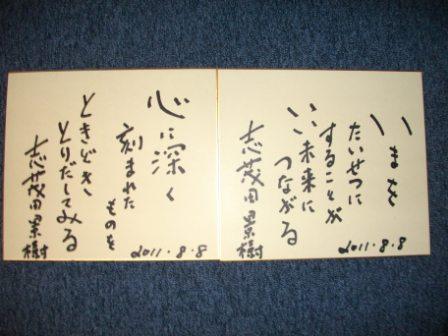 いまを
たいせつに
することが
いい未来に
つながる
志茂田景樹
2011.8.8
心に深く
刻まれた
ものを
ときどき
とりだしてみる
志茂田景樹
2011.8.8